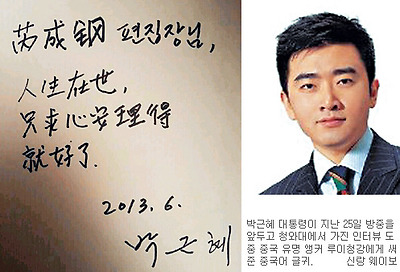 芮成钢 편집장님,
人生在世,
只求心安理得
就好了.
2013.6.
박근혜
박근혜 대통령이 지난 25일 방중을
앞두고 청와대에서 가진 인터뷰 도
중 중국 유명 앵커 루이청강에게 써
준 중국어 글귀. 신랑 웨이보